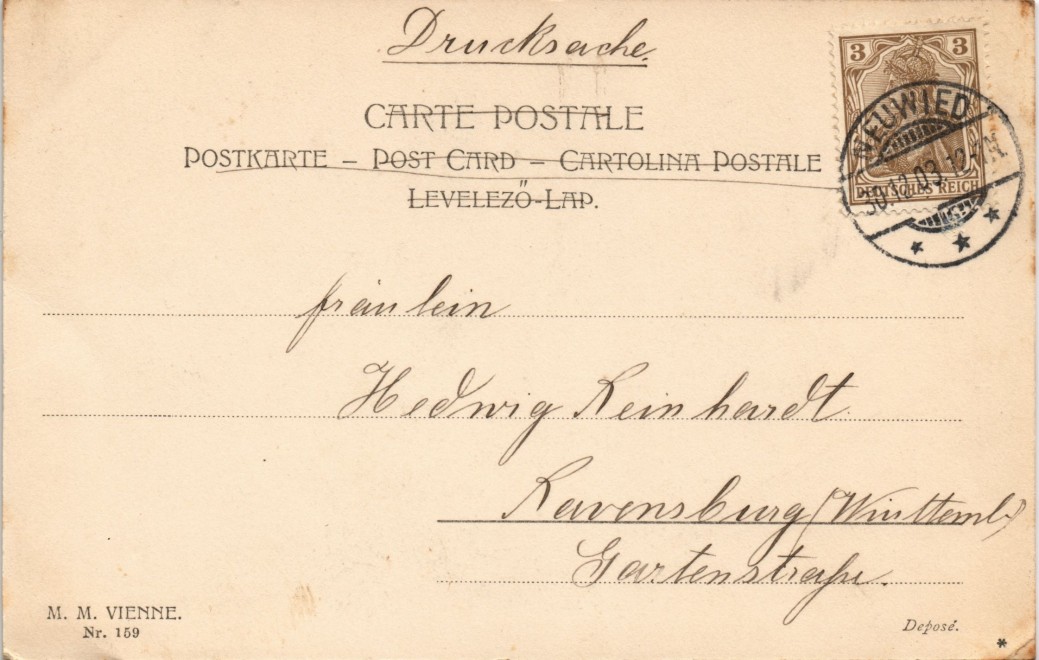 Drucksache.
3 3
CARTE POSTALE
NEUWIED
POSTKARTE – POST CARD – CARTOLINA POSTALE
30.12.03. 12-1 N.
DEUTSCHES REICH
LEVELEZŐ-LAP.
Fräulein
Hedwig Reinhardt.
Ravensburg (Württemb.)
Gartenstraße.
M. M. VIENNE.
Nr. 159
Deposé.